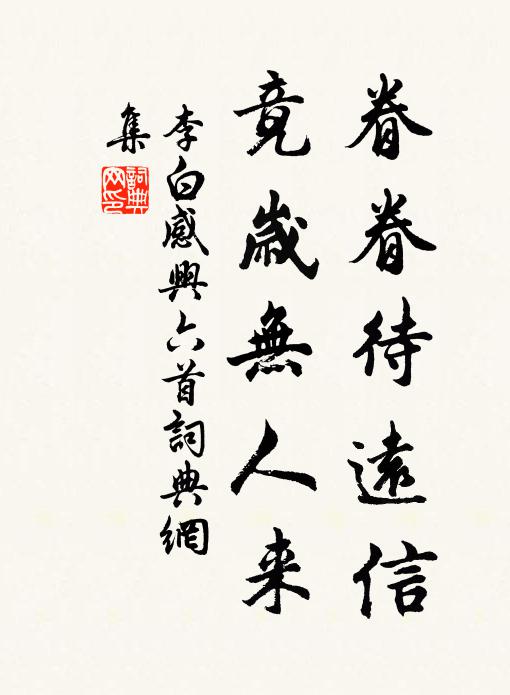 眷眷待遠信
竟歲無人来
李白感興六首詞典網
集
詞典
网印